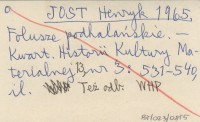 JOST Henryk 1965.
Folusze podhalańskie. –
Kwart. Historii Kultury Ma-
terialnej 13 nr 3: 531-540,
il.
Też odb. WHP